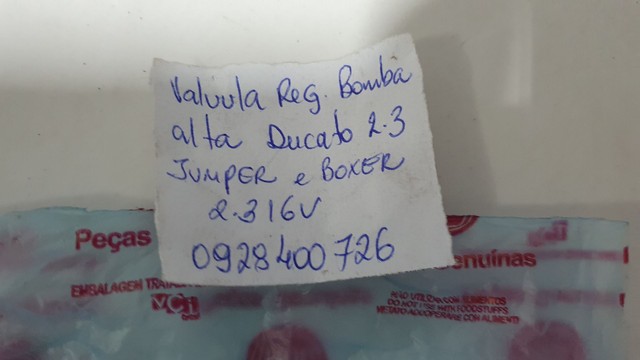 Valvula Reg. Bomba
alta Ducato 2.3
JUMPER e BOXER
2.3 16V
0928400726
Peças
enuínas
EMBALAGEM
VCi
NÃO UTILIZAR COM ALIMENTOS
DO NOT USE WITH FOODSTUFFS